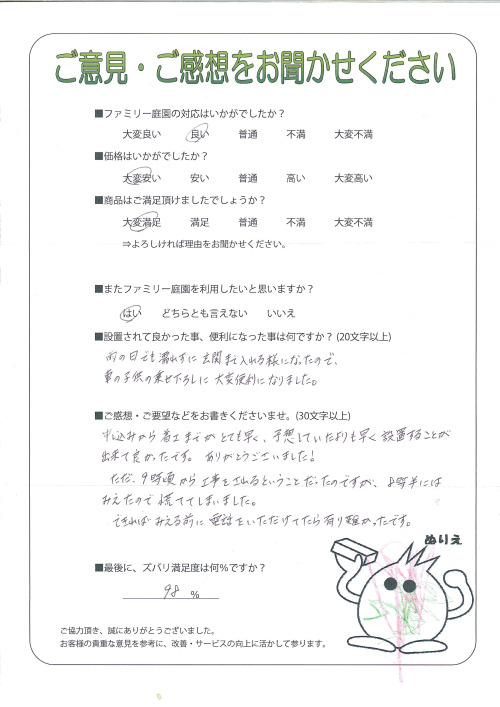 ご意見・ご感想をお聞かせください
■ファミリー庭園の対応はいかがでしたか？
大変良い 良い 普通 不満 大変不満
■価格はいかがでしたか？
大変安い 安い 普通 高い 大変高い
■商品はご満足頂けましたでしょうか？
大変満足 満足 普通 不満 大変不満
⇒よろしければ理由をお聞かせください。
■またファミリー庭園を利用したいと思いますか？
はい どちらとも言えない いいえ
■設置されて良かった事、便利になった事は何ですか？(20文字以上)
雨の日でも濡れずに玄関まで入れる様になったので、
車の子供の乗せ下ろしに大変便利になりました。
■ご感想・ご要望などをお書きくださいませ。(30文字以上)
申込みから着工までがとても早く、予想していたよりも早く設置することが
出来て良かったです。ありがとうございました！
ただ、9時頃から工事をされるということだったのですが、8時半には
みえたので慌ててしまいました。
できればみえる前に電話をいただけてたら有り難かったです。
ぬりえ
■最後に、ズバリ満足度は何%ですか？
98 %
ご協力頂き、誠にありがとうございました。
お客様の貴重な意見を参考に、改善・サービスの向上に活かして参ります。